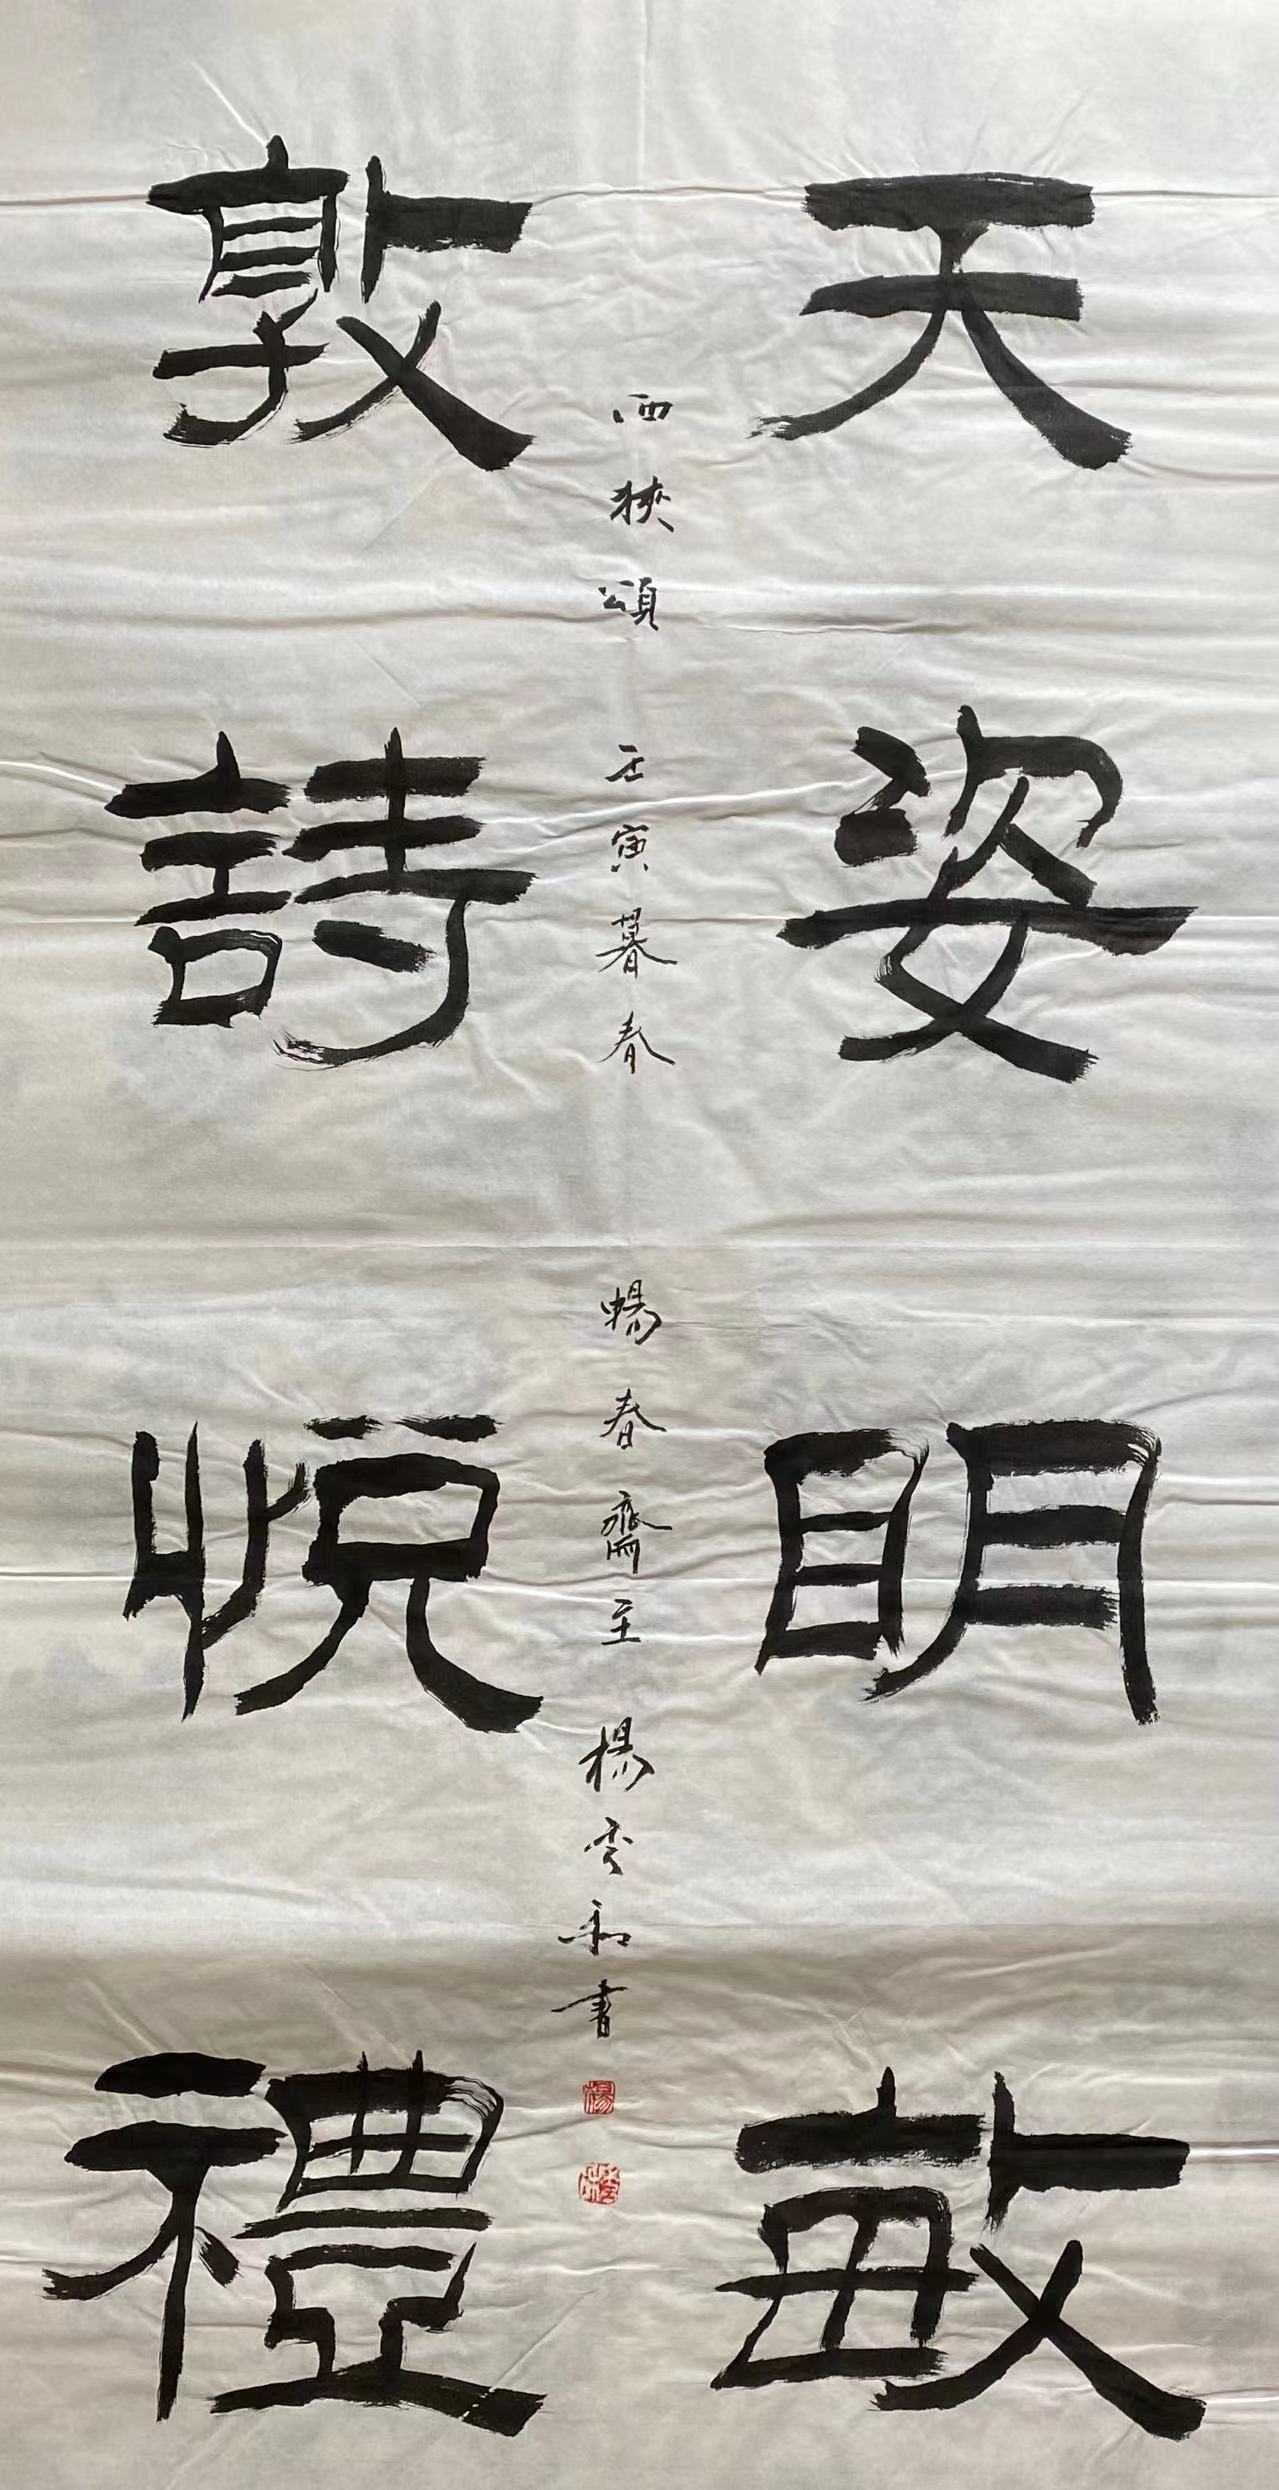 天姿明敏
敦詩悅禮
西狹頌 壬寅暮春 暢春齋主 楊雲和書
楊